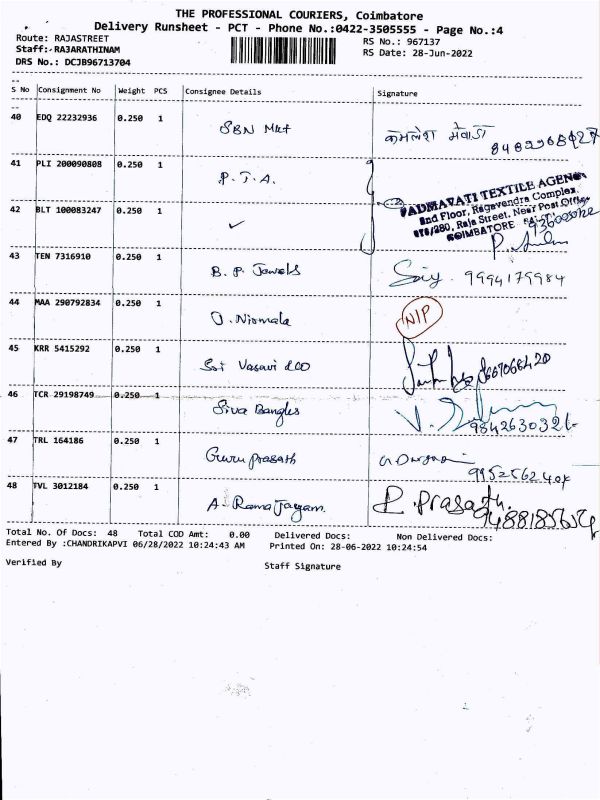 THE PROFESSIONAL COURIERS, Coimbatore
Delivery Runsheet - PCT - Phone No.:0422-3505555 - Page No.:4
Route: RAJASTREET
RS No.: 967137
Staff:- RAJARATHINAM
RS Date: 28-Jun-2022
DRS No.: DCJB96713704
S No Consignment No Weight PCS Consignee Details Signature
40 EDQ 22232936 0.250 1 SBN Mkt कमलेश मेवाडा
41 PLI 200090808 0.250 1 P.T.A.
PADMAVATI TEXTILE AGENCY
2nd Floor, Ragavendra Complex
Raja Street, Near Post Office
COIMBATORE
42 BLT 100083247 0.250 1 ✓
43 TEN 7316910 0.250 1 B. P. Jewels 9994179984
44 MAA 290792834 0.250 1 D. Nirmala NIP
45 KRR 5415292 0.250 1 Sri Vasavi
46 TCR 29198749 0.250 1 Siva Bangles 9842630321
47 TRL 164186 0.250 1 Guru prasath
48 TVL 3012184 0.250 1 A. Rama Jayam. P. Prasath.
Total No. Of Docs: 48 Total COD Amt: 0.00 Delivered Docs: Non Delivered Docs:
Entered By :CHANDRIKAPVI 06/28/2022 10:24:43 AM Printed On: 28-06-2022 10:24:54
Verified By Staff Signature